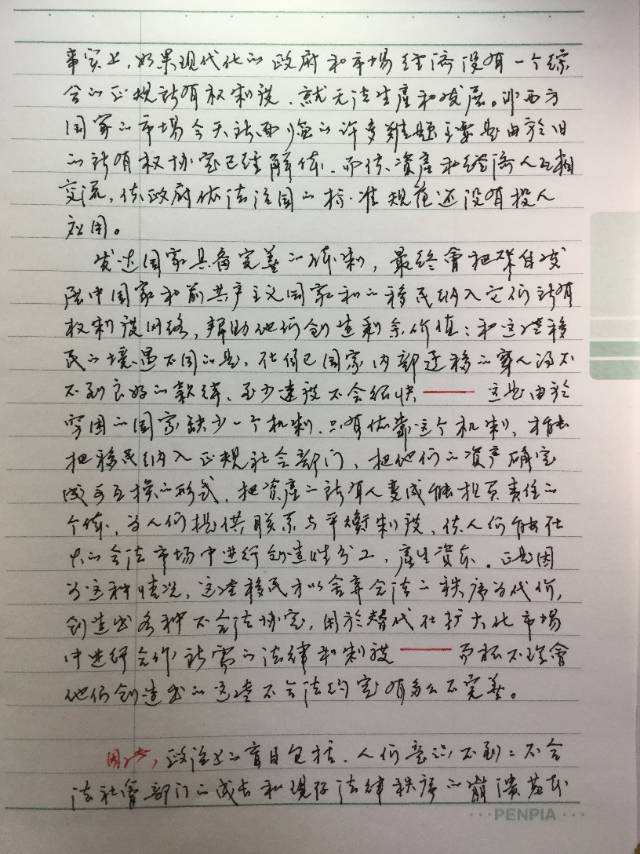 事实上,如果现代化的政府和市场经济没有一个综
合的正规所有权制设,就无法生產和发展。非西方
国家的市场今天所面临的许多难题主要是由於旧
的所有权协定已经解体,而使资產和经济人互相
交流,使政府依法治国的标准规范还没有投入
应用。
发达国家具备完善的体制,最终會把来自发
展中国家和前共产主义国家和的移民纳入它们所有
权制设网络,帮助他们创造剩余价值:和这些移
民的境遇不同的是,在自己国家内部迁移的穷人得不
不到良好的款待,至少速设不会很快——这是由於
穷国的国家缺少一个机制,只有依靠这个机制,才能
把移民纳入正规社会部门,把他们的资产确定
成可互换的形式,把资產的所有人变成能担负责任的
个体,为人们提供联系与平衡制设,使人们能在
大的合法市场中进行创造性分工,產生资本。正是因
为这种情况,这些移民才以舍弃合法的秩序为代价,
创造出各种不合法协定,用於替代在扩大化市场
中进行合作所需的法律和制设——而极不理會
他们创造出的这些不合法约定有多么不完善。
因此,政治上的盲目包括,人们意识不到:不合
法社會部门的成长和现存法律秩序的崩溃基本
PENPIA